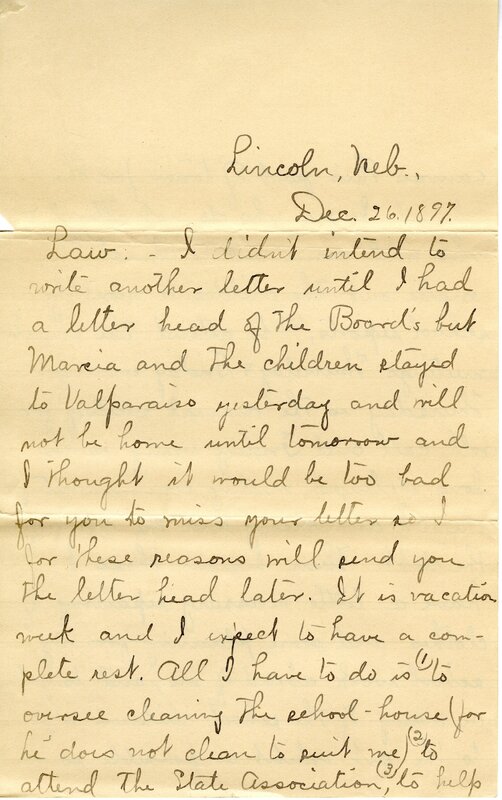 Lincoln, Neb.,
Dec. 26, 1897.
Law: - I didn't intend to
write another letter until I had
a letter head of the Board's but
Marcia and the children stayed
to Valparaiso yesterday and will
not be home until tomorrow and
I thought it would be too bad
for you to miss your letter so I
for these reasons will send you
the letter head later. It is vacation
week and I expect to have a com-
plete rest. All I have to do is (1) to
oversee cleaning the school-house (for
he does not clean to suit me) (2) to
attend the State Association, (3) to help